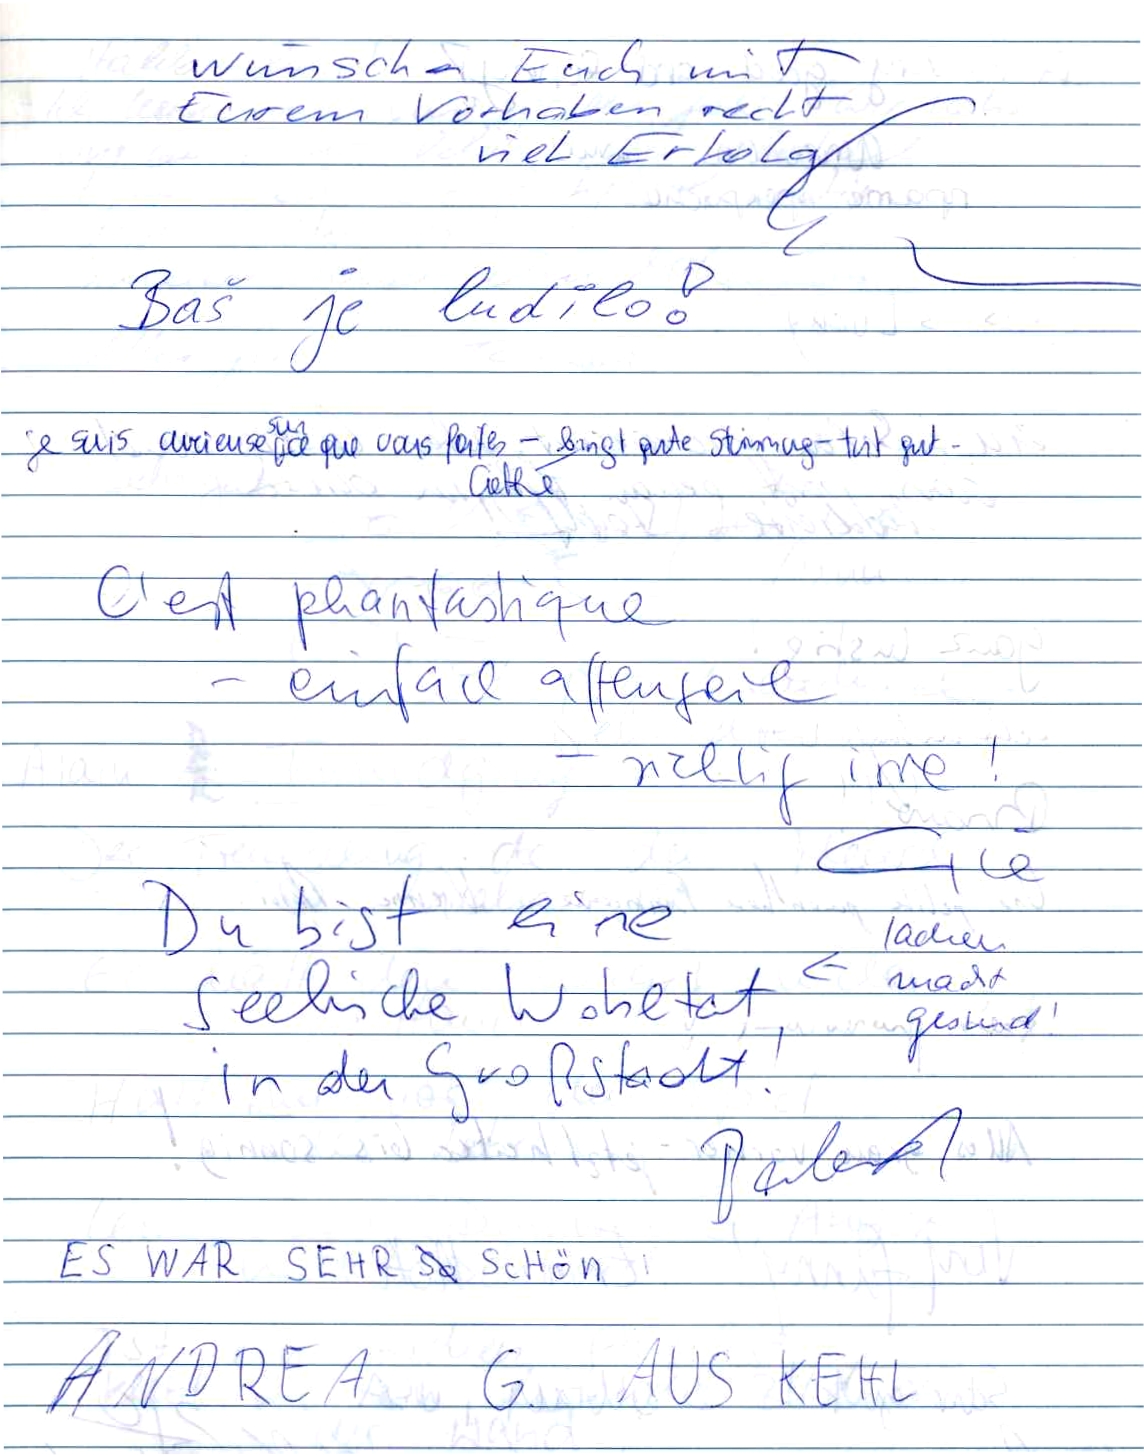 wünsche Euch mit
Eurem Vorhaben recht
viel Erfolg
Baš je ludilo!
je suis curieuse sur ce que vous faites – bringt gute Stimmung – tut gut –
C'est phantastique
– einfach affengeil
– richtig irre!
Du bist eine
seelische Wohltat ← lachen macht gesund!
in der Großstadt!
ES WAR SEHR SCHÖN!
ANDREA G. AUS KEHL